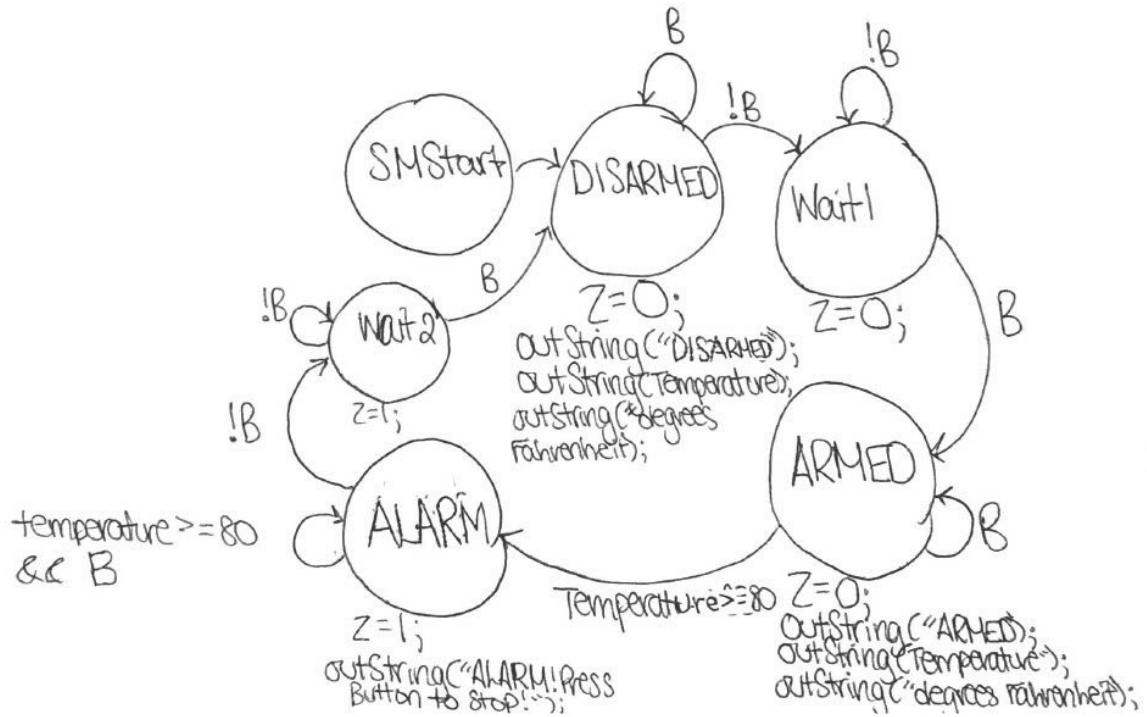 B
!B
!B
SMStart
DISARMED
Wait1
B
!B
Wait2
Z=0;
Z=0;
B
outString("DISARMED");
outString(Temperature);
outString("degrees
Fahrenheit);
z=1;
!B
ARMED
ALARM
B
temperature>=80
&& B
Temperature>=80
Z=0;
z=1;
outString("ARMED);
outString("Temperature");
outString("degrees Fahrenheit);
outString("ALARM! Press
Button to stop!");